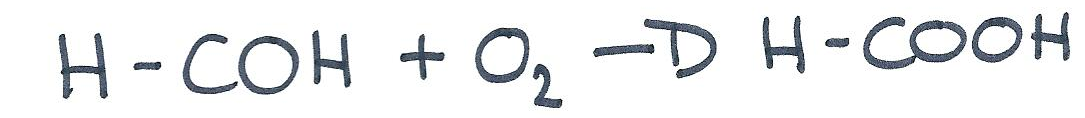 H-COH + O₂ → H-COOH